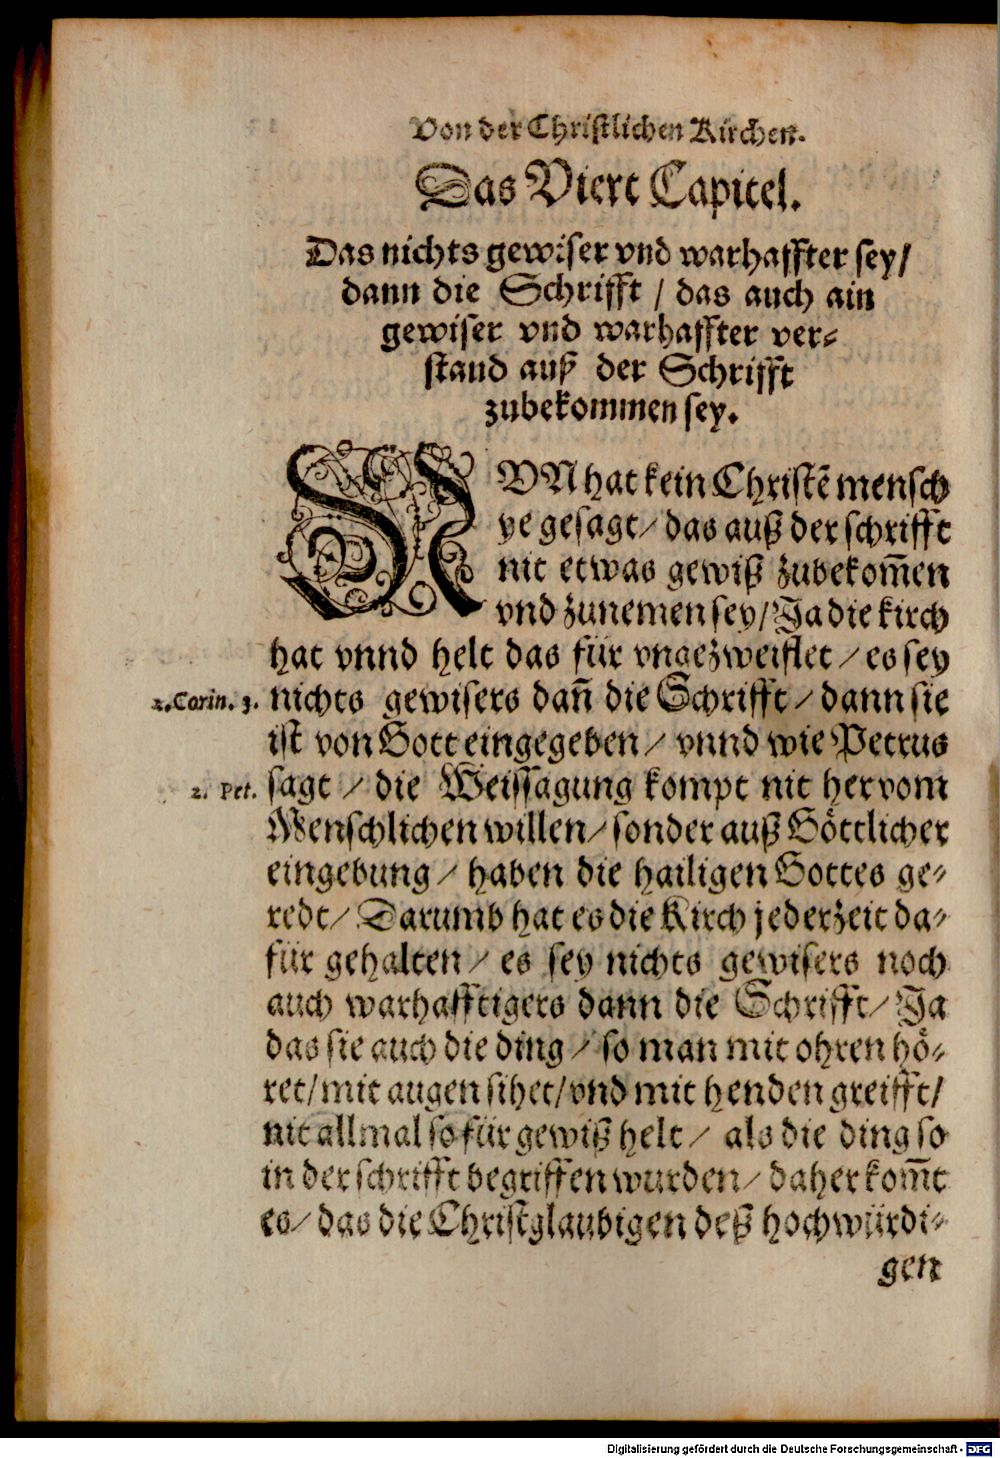 Von der Christlichen Kirchen.
Das Viert Capitel.
Das nichts gewiser vnd warhaffter sey/
dann die Schrifft / das auch ain
gewiser vnd warhaffter ver-
stand auß der Schrifft
zubekommen sey.
NVN hat kein Christē mensch
ye gesagt / das auß der schrifft
nit etwas gewiß zubekom̄en
vnd zunemen sey / Ja die kirch
hat vnnd helt das für vngezweiflet / es sey
2. Corin. 3. nichts gewisers dan̄ die Schrifft / dann sie
ist von Gott eingegeben / vnnd wie Petrus
2. Pet. sagt / die Weissagung kompt nit her vom
Menschlichen willen / sonder auß Göttlicher
eingebung / haben die hailigen Gottes ge-
redt / Darumb hat es die Kirch jederzeit da-
für gehalten / es sey nichts gewisers noch
auch warhafftigers dann die Schrifft / Ja
das sie auch die ding / so man mit ohren hö-
ret / mit augen sihet / vnd mit henden greifft /
nit allmal so für gewiß helt / als die ding so
in der schrifft begriffen wurden / daher kom̄t
es / das die Christglaubigen deß hochwürdi-
gen
Digitalisierung gefördert durch die Deutsche Forschungsgemeinschaft - DFG